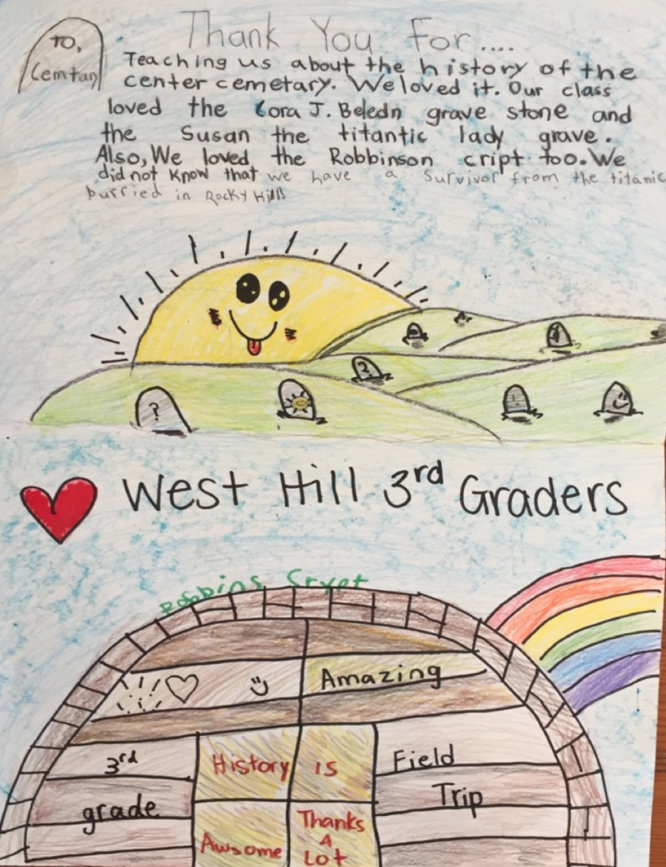 TO,
Cemtary
Thank You For....
Teaching us about the history of the
center cemetary. We loved it. Our class
loved the Cora J. Beledn grave stone and
the Susan the titantic lady grave.
Also, We loved the Robbinson cript too. We
did not know that we have a Survivor from the titanic
burried in Rocky Hill
?
?
West Hill 3rd Graders
Robbins Crypt
Amazing
3rd
grade
History is
Awsome
Thanks
A
Lot
Field
Trip